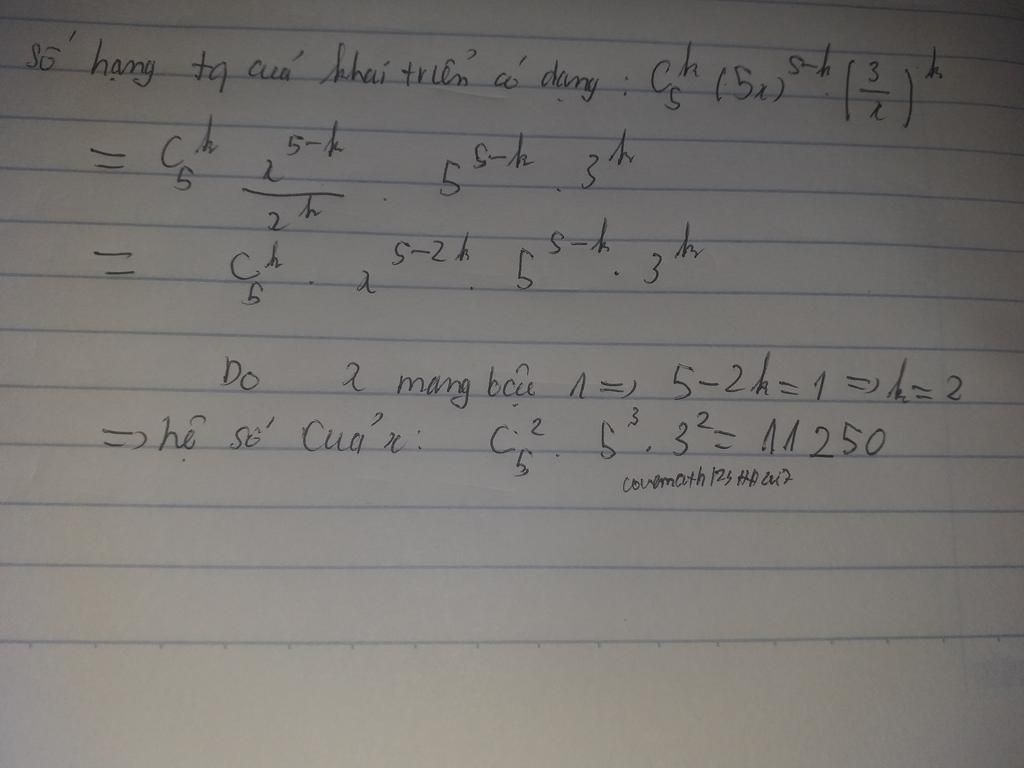 số hạng tq cuả khai triển có dạng: C₅ᵏ (5x)⁵⁻ᵏ . (3/x)ᵏ
= C₅ᵏ x⁵⁻ᵏ/xᵏ . 5⁵⁻ᵏ . 3ᵏ
= C₅ᵏ . x⁵⁻²ᵏ . 5⁵⁻ᵏ . 3ᵏ
Do x mang bậc 1 => 5-2k=1 => k=2
=> hệ số Cuả x: C₅² . 5³ . 3² = 11250